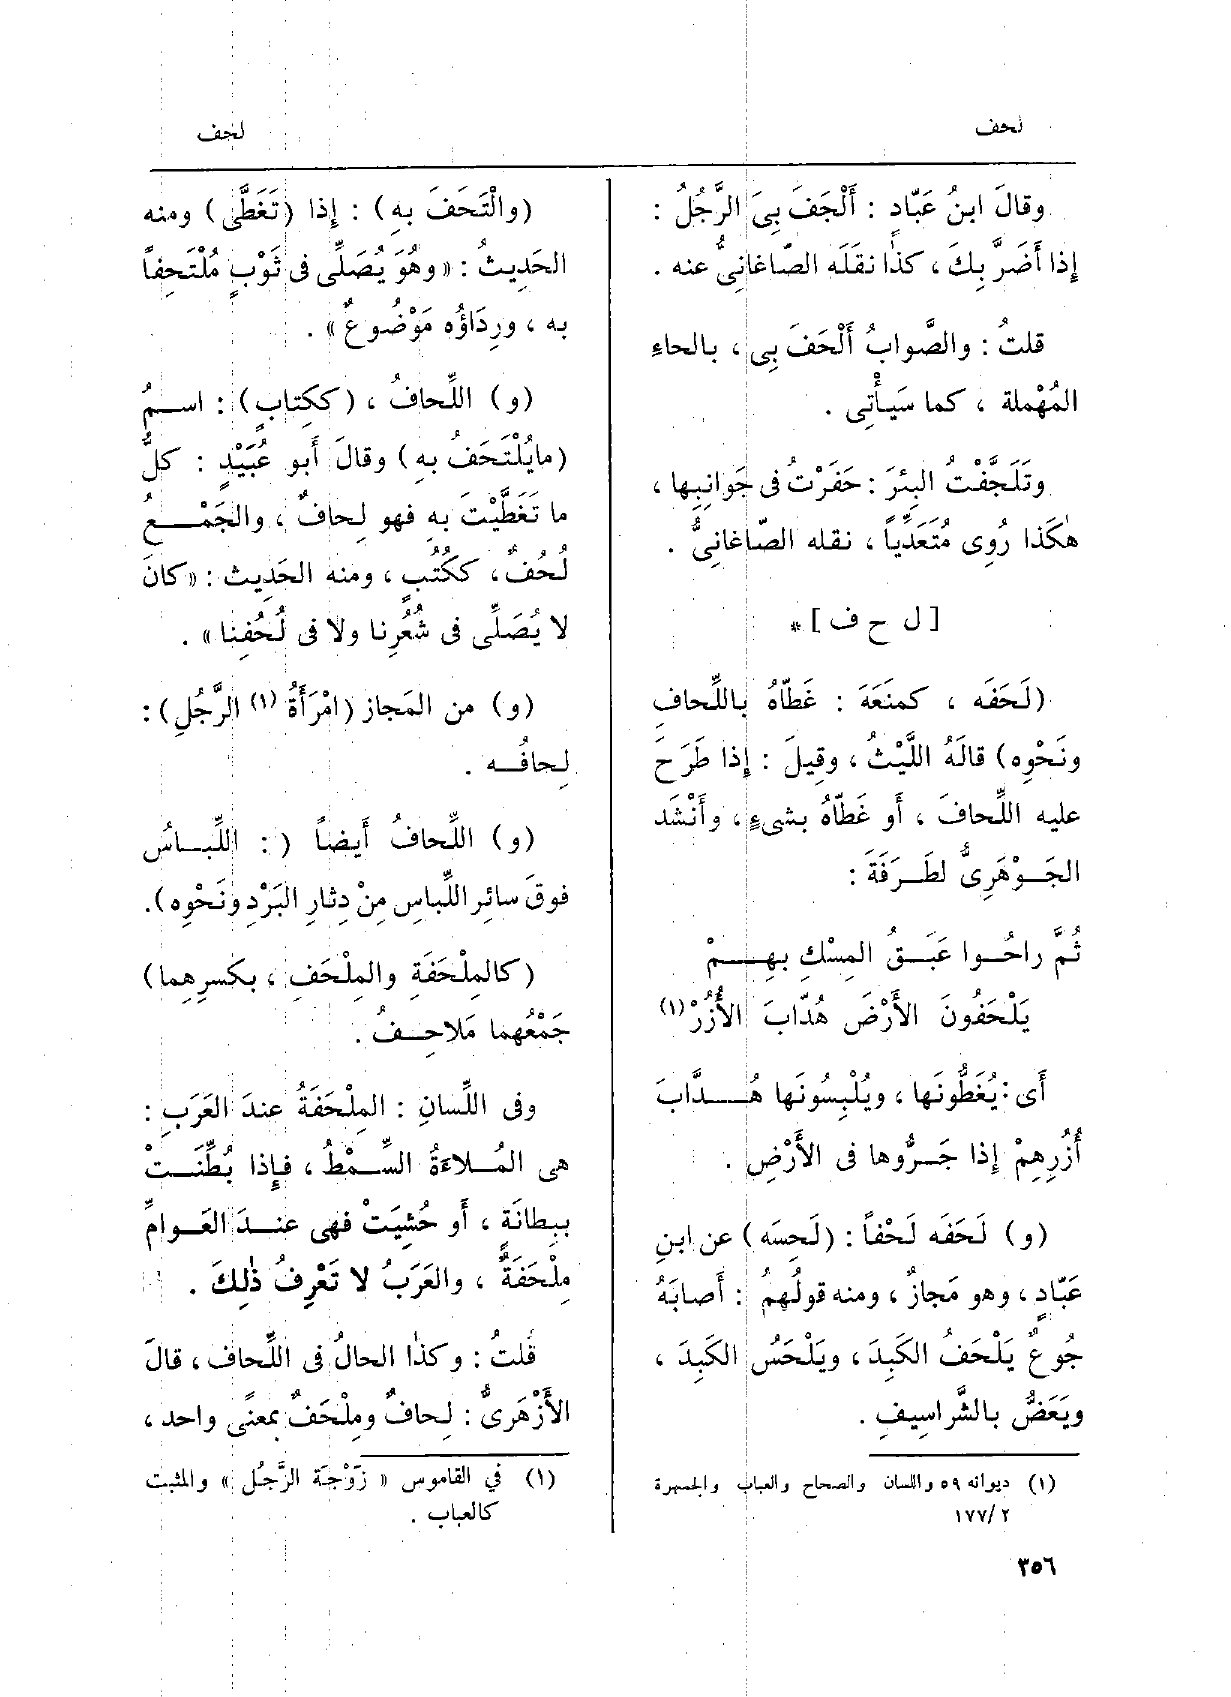 لحف
لجف
وقالَ ابنُ عَبّادٍ : أَلْجَفَ بِىَ الرَّجُلُ :
إِذا أَضَرَّ بِكَ ، كذٰا نقلَه الصّاغانِىُّ عنه .
قلتُ : والصَّوابُ أَلْحَفَ بِى ، بالحاءِ
المُهْملة ، كما سَيَأْتِى .
وتَلَجَّفْتُ البِئرَ : حَفَرْتُ فى جَوانِبِها ،
هٰكَذا رُوِى مُتَعَدِّياً ، نقله الصّاغانِىُّ .
[ ل ح ف ] *
(لَحَفَه ، كمنَعَهَ : غَطّاهُ باللِّحافِ
ونَحْوِه) قالَهُ اللَّيْثُ ، وقِيلَ : إِذا طَرَحَ
عليه اللِّحافَ ، أَو غَطّاهُ بشىءٍ ، وأَنْشَد
الجَـوْهَرِىُّ لطَـرَفَةَ :
ثُمَّ راحُـوا عَبَـقُ المِسْكِ بِهِـــمْ
يَلْحَفُونَ الأَرْضَ هُدّابَ الأُزُرْ (١)
أَى : يُغَطُّونَها ، ويُلْبِسُونَها هُـــدَّابَ
أُزُرِهِمْ إِذا جَـرُّوها فى الأَرْضِ .
(و) لَحَفَه لَحْفاً : (لَحِسَه) عن ابنِ
عَبّادٍ ، وهو مَجازٌ ، ومنه قولُهمُ : أَصابَهُ
جُوعٌ يَلْحَفُ الكَبِدَ ، ويَلْحَسُ الكَبِدَ ،
ويَعَضُّ بالشَّراسِيفِ .
(١) ديوانه ٥٩ واللسان والصحاح والعباب والجمهرة
٢/١٧٧
(والْتَحَفَ بِهِ) : إِذا (تَغَطَّى) ومنه
الحَدِيثُ : « وهُوَ يُصَلِّى فى ثَوْبٍ مُلْتَحِفاً
به ، ورِدَاؤُه مَوْضُوعٌ » .
(و) اللِّحافُ ، (ككِتابٍ) : اســمُ
(مايُلْتَحَفُ بِهِ) وقالَ أَبو عُبَيْدٍ : كلُّ
ما تَغَطَّيْتَ بِهِ فهو لِحافٌ ، والجَمْــعُ
لُحُفٌ ، ككُتُبٍ ، ومنه الحَدِيث : « كانَ
لا يُصَلِّى فى شُعُرِنا ولا فى لُحُفِنا » .
(و) من المَجاز (امْرَأَةُ (١) الرَّجُلِ) :
لِحافُــه .
(و) اللِّحافُ أَيضاً ( : اللِّبــاسُ
فوقَ سائِر اللِّباسِ مِنْ دِثارِ البَرْدِ ونَحْوِه).
(كالمِلْحَفَةِ والمِلْحَفِ ، بكسرِهِما)
جَمْعُهما مَلاحِــفُ .
وفى اللِّسانِ : المِلْحَفَةُ عندَ العَرَبِ :
هى المُــلاءَةُ السِّــمْطُ ، فإِذا بُطِّنَــتْ
ببِطانَةٍ ، أَو حُشِيَتْ فهى عنــدَ العَـوامِّ
مِلْحَفَةٌ ، والعَرَبُ لا تَعْرِفُ ذٰلِكَ .
قُلتُ : وكذٰا الحالُ فى اللِّحاف ، قالَ
الأَزْهَرِىُّ : لِحافٌ ومِلْحَفٌ بمعنًى واحد ،
(١) في القاموس « زَوْجَة الرَّجُل » والمثبت
كالعباب .
٣٥٦